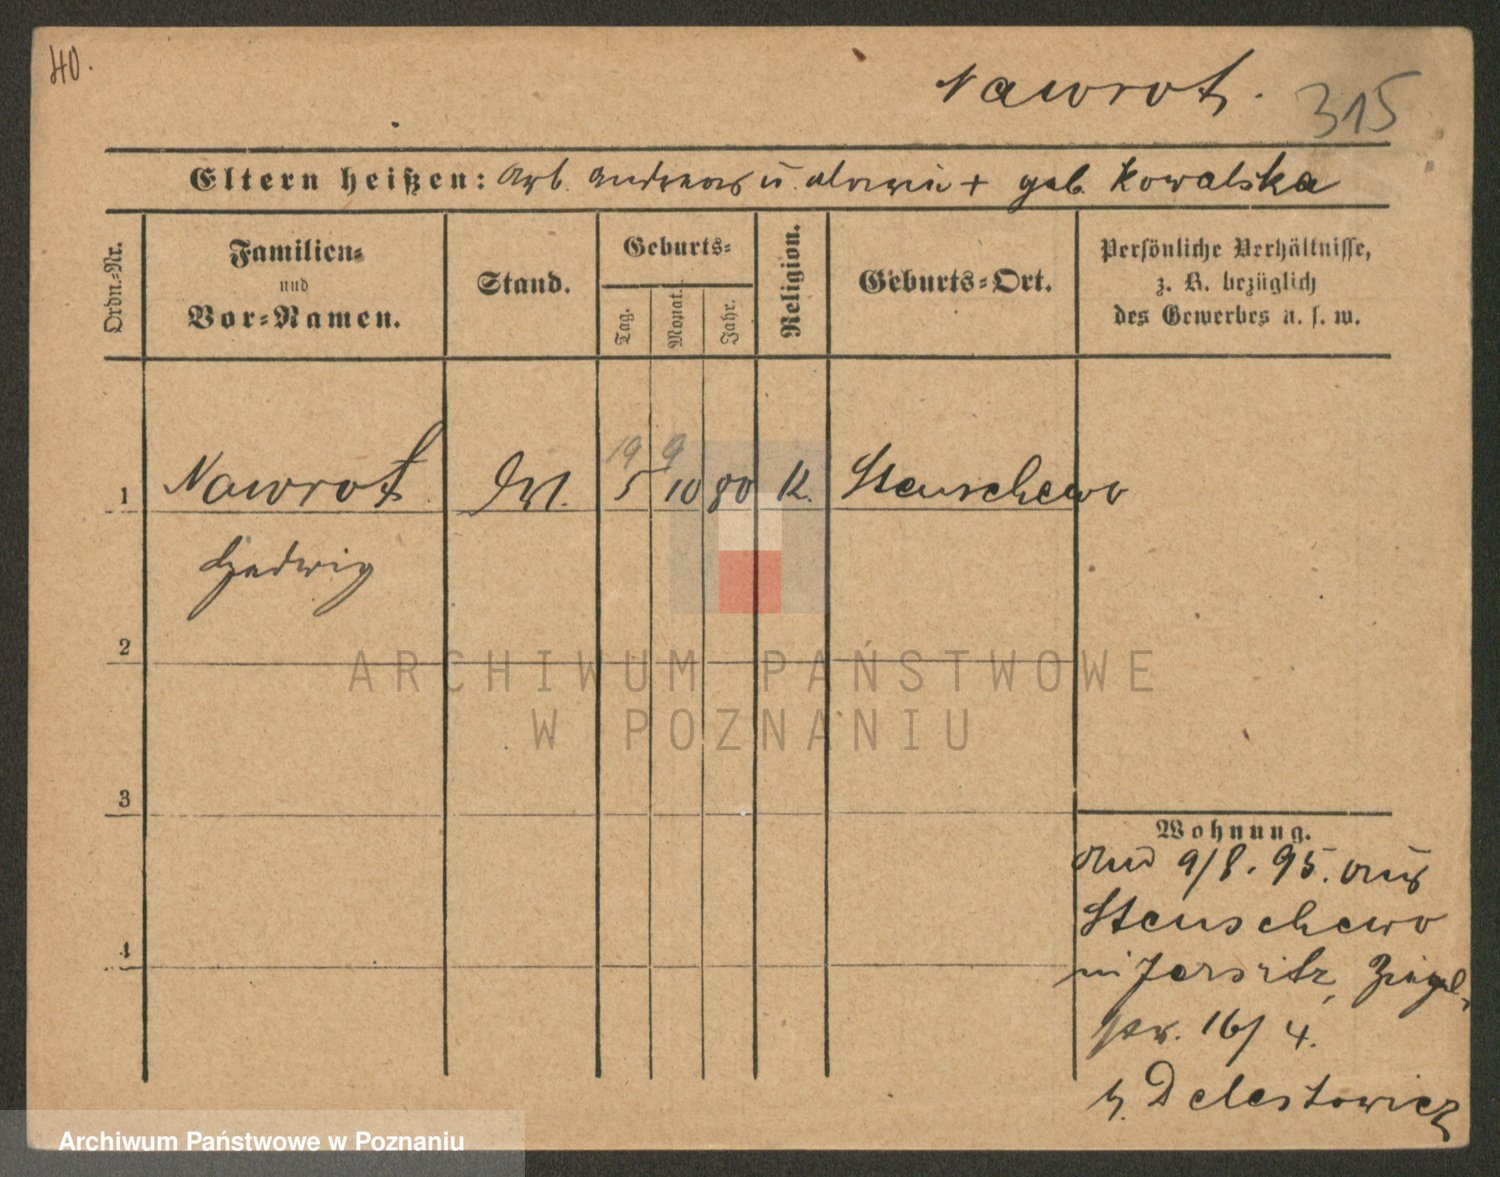 40.
Nawrot.
315
Eltern heißen: Arb. Andreas u. Maria + geb. Kowalska
Ordn.-Nr.
Familien-
und
Vor-Namen.
Stand.
Geburts-
Tag.
Monat.
Jahr.
Religion.
Geburts-Ort.
Persönliche Verhältnisse,
z. B. bezüglich
des Gewerbes u. s. w.
19 9
1 Nawrot 5 10 80 K. Stenschewo
Hedwig
2
ARCHIWUM PAŃSTWOWE
W POZNANIU
3
Wohnung.
9/8. 95. aus
Stenschewo
in Jersitz, Ziegel-
str. 16/4.
b. Delestowicz
4
Archiwum Państwowe w Poznaniu